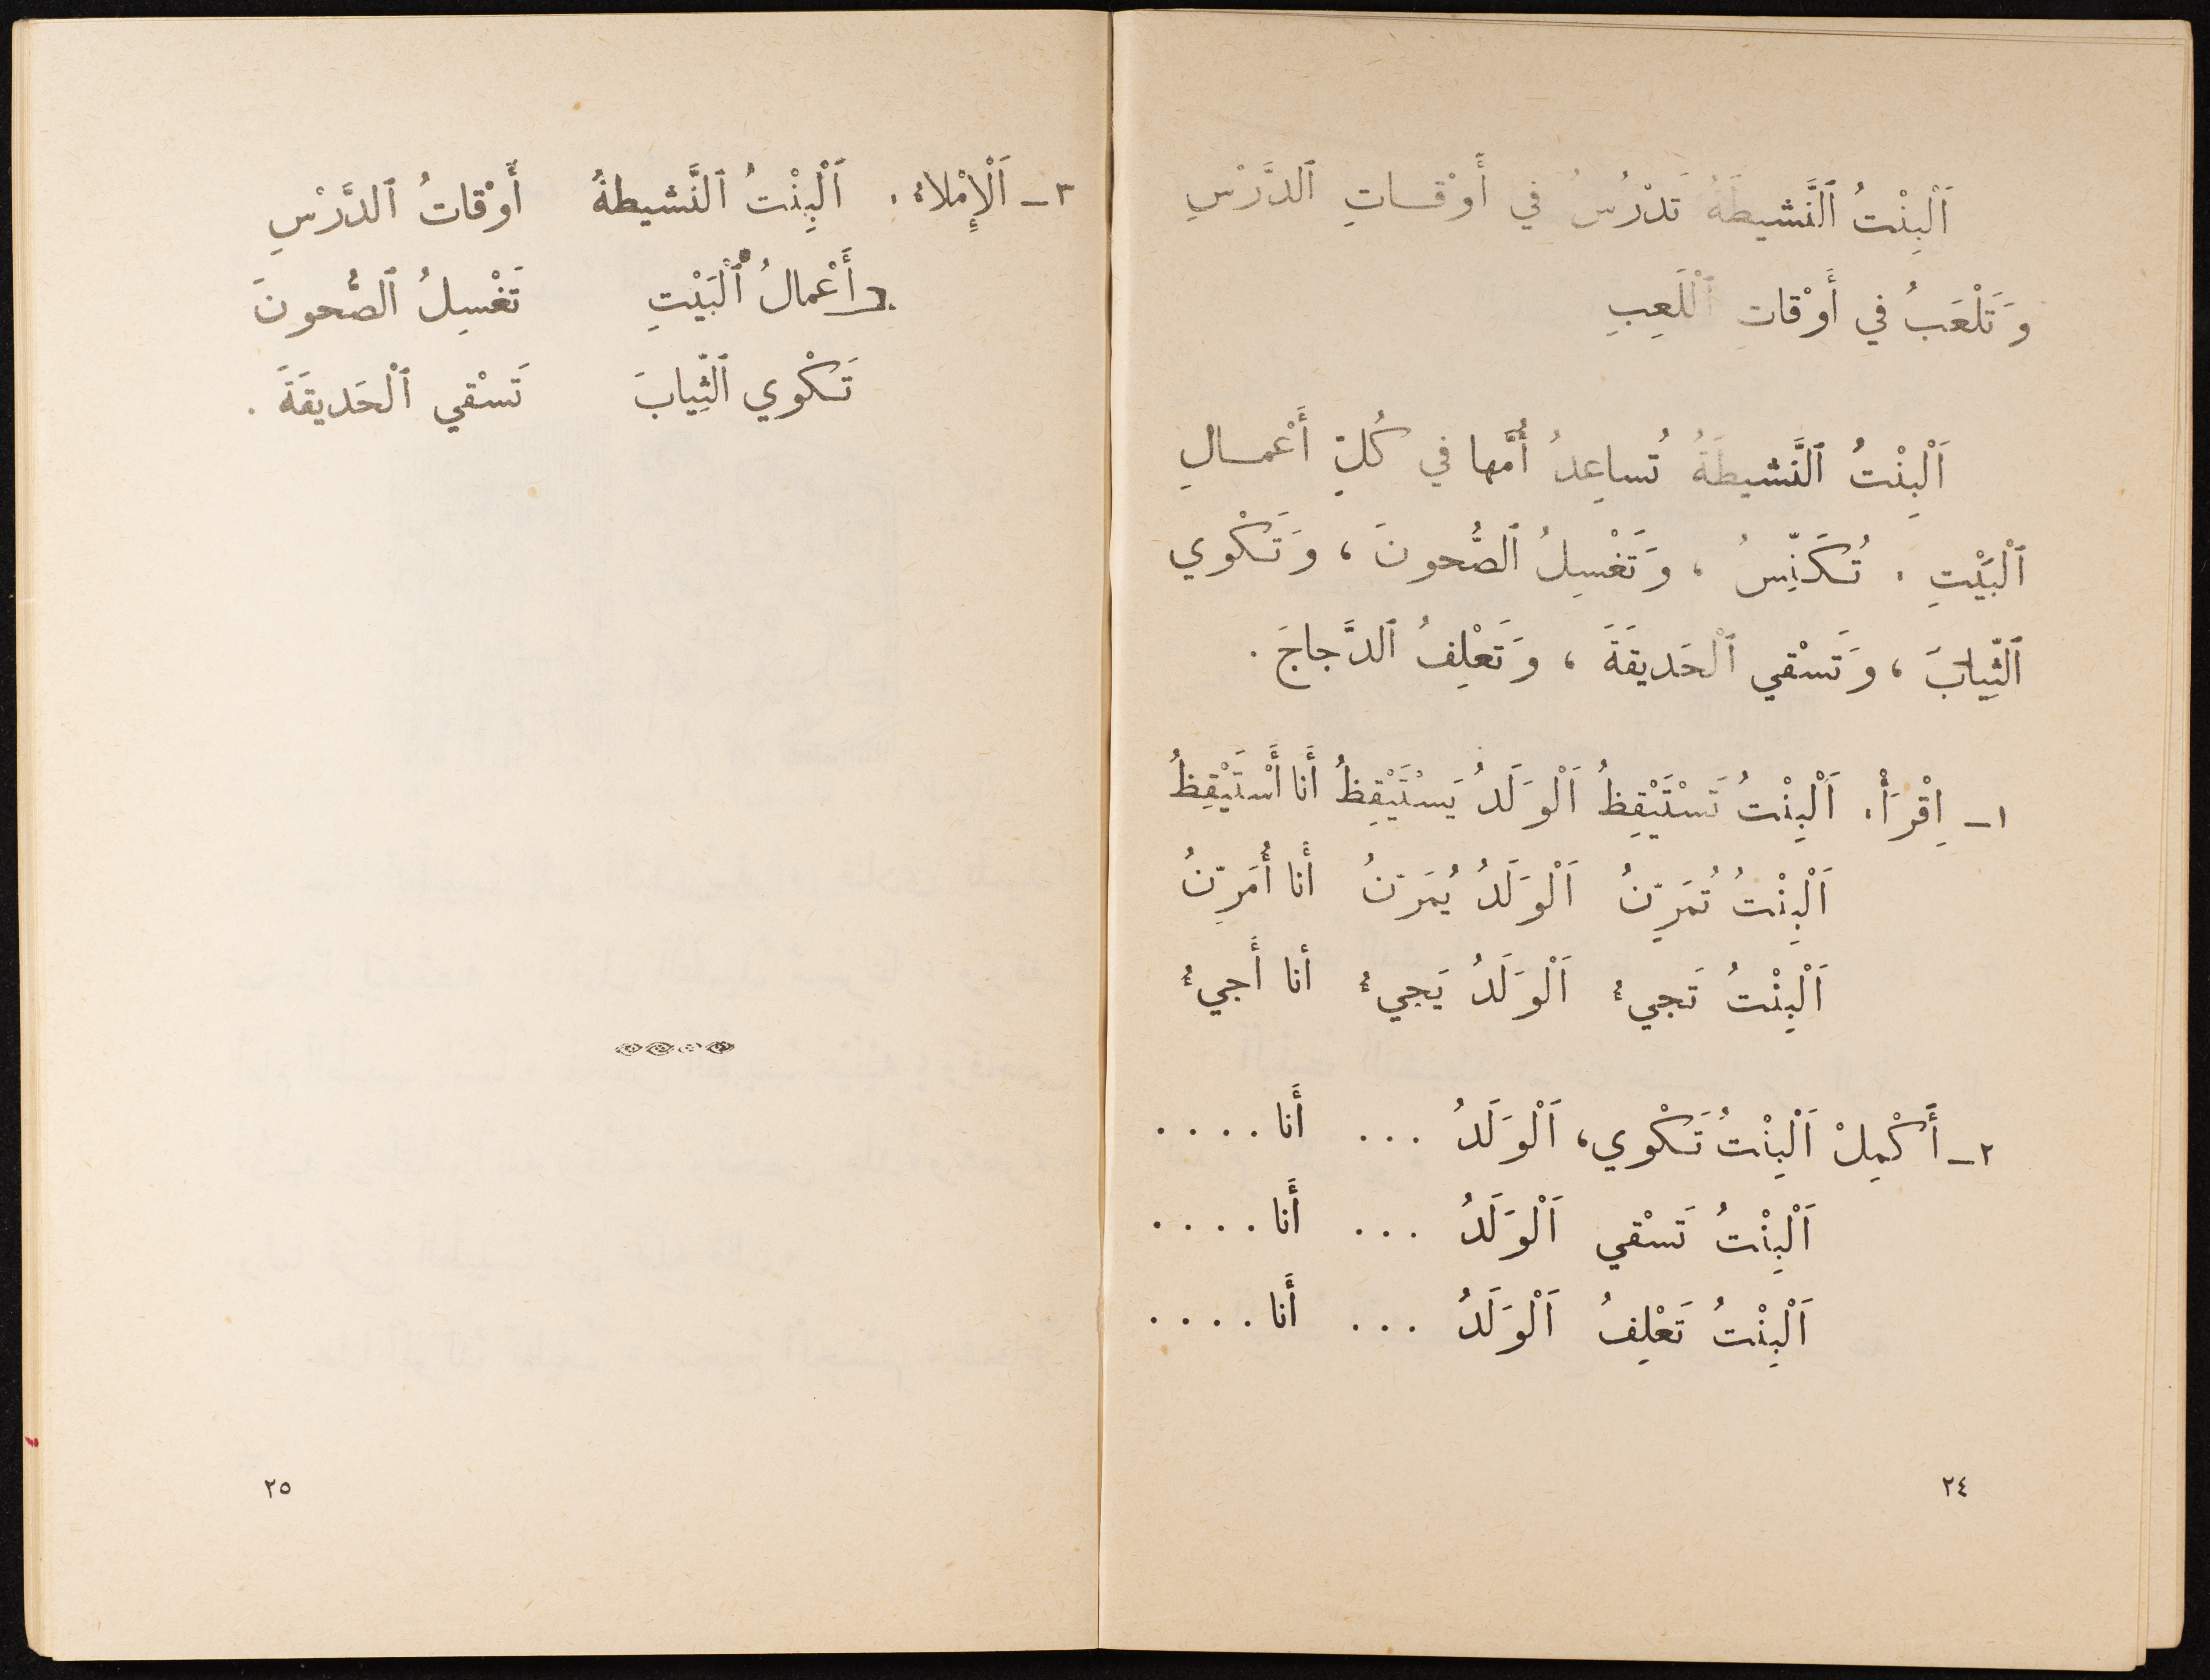 اَلْبِنْتُ ٱلنَّشيطَةُ تَدْرُسُ في أَوْقـاتِ ٱلدَّرْسِ
وَتَلْعَبُ في أَوْقاتِ ٱللَّعِبِ
اَلْبِنْتُ ٱلنَّشيطَةُ تُساعِدُ أُمَّها في كُلِّ أَعْمـالِ
ٱلْبَيْتِ . تُكَنِّسُ ، وَتَغْسِلُ ٱلصُّحونَ ، وَتَكْوي
ٱلثِّيابَ ، وَتَسْقي ٱلْحَديقَةَ ، وَتَعْلِفُ ٱلدَّجاجَ .
١ـ اِقْرَأْ. اَلْبِنْتُ تَسْتَيْقِظُ اَلْوَلَدُ يَسْتَيْقِظُ أَنا أَسْتَيْقِظُ
اَلْبِنْتُ تُمَرِّنُ اَلْوَلَدُ يُمَرِّنُ أَنا أُمَرِّنُ
اَلْبِنْتُ تَجيءُ اَلْوَلَدُ يَجيءُ أنا أَجيءُ
٢ـ أَكْمِلْ اَلْبِنْتُ تَكْوي، اَلْوَلَدُ ... أَنا ....
اَلْبِنْتُ تَسْقي اَلْوَلَدُ ... أَنا ....
اَلْبِنْتُ تَعْلِفُ اَلْوَلَدُ ... أَنا ....
٢٤
٣ـ اَلْإِمْلاءُ . اَلْبِنْتُ ٱلنَّشيطةُ أَوْقاتُ ٱلدَّرْسِ
أَعْمالُ ٱلْبَيْتِ تَغْسِلُ ٱلصُّحونَ
تَكْوي ٱلثِّيابَ تَسْقي ٱلْحَديقَةَ .
٢٥